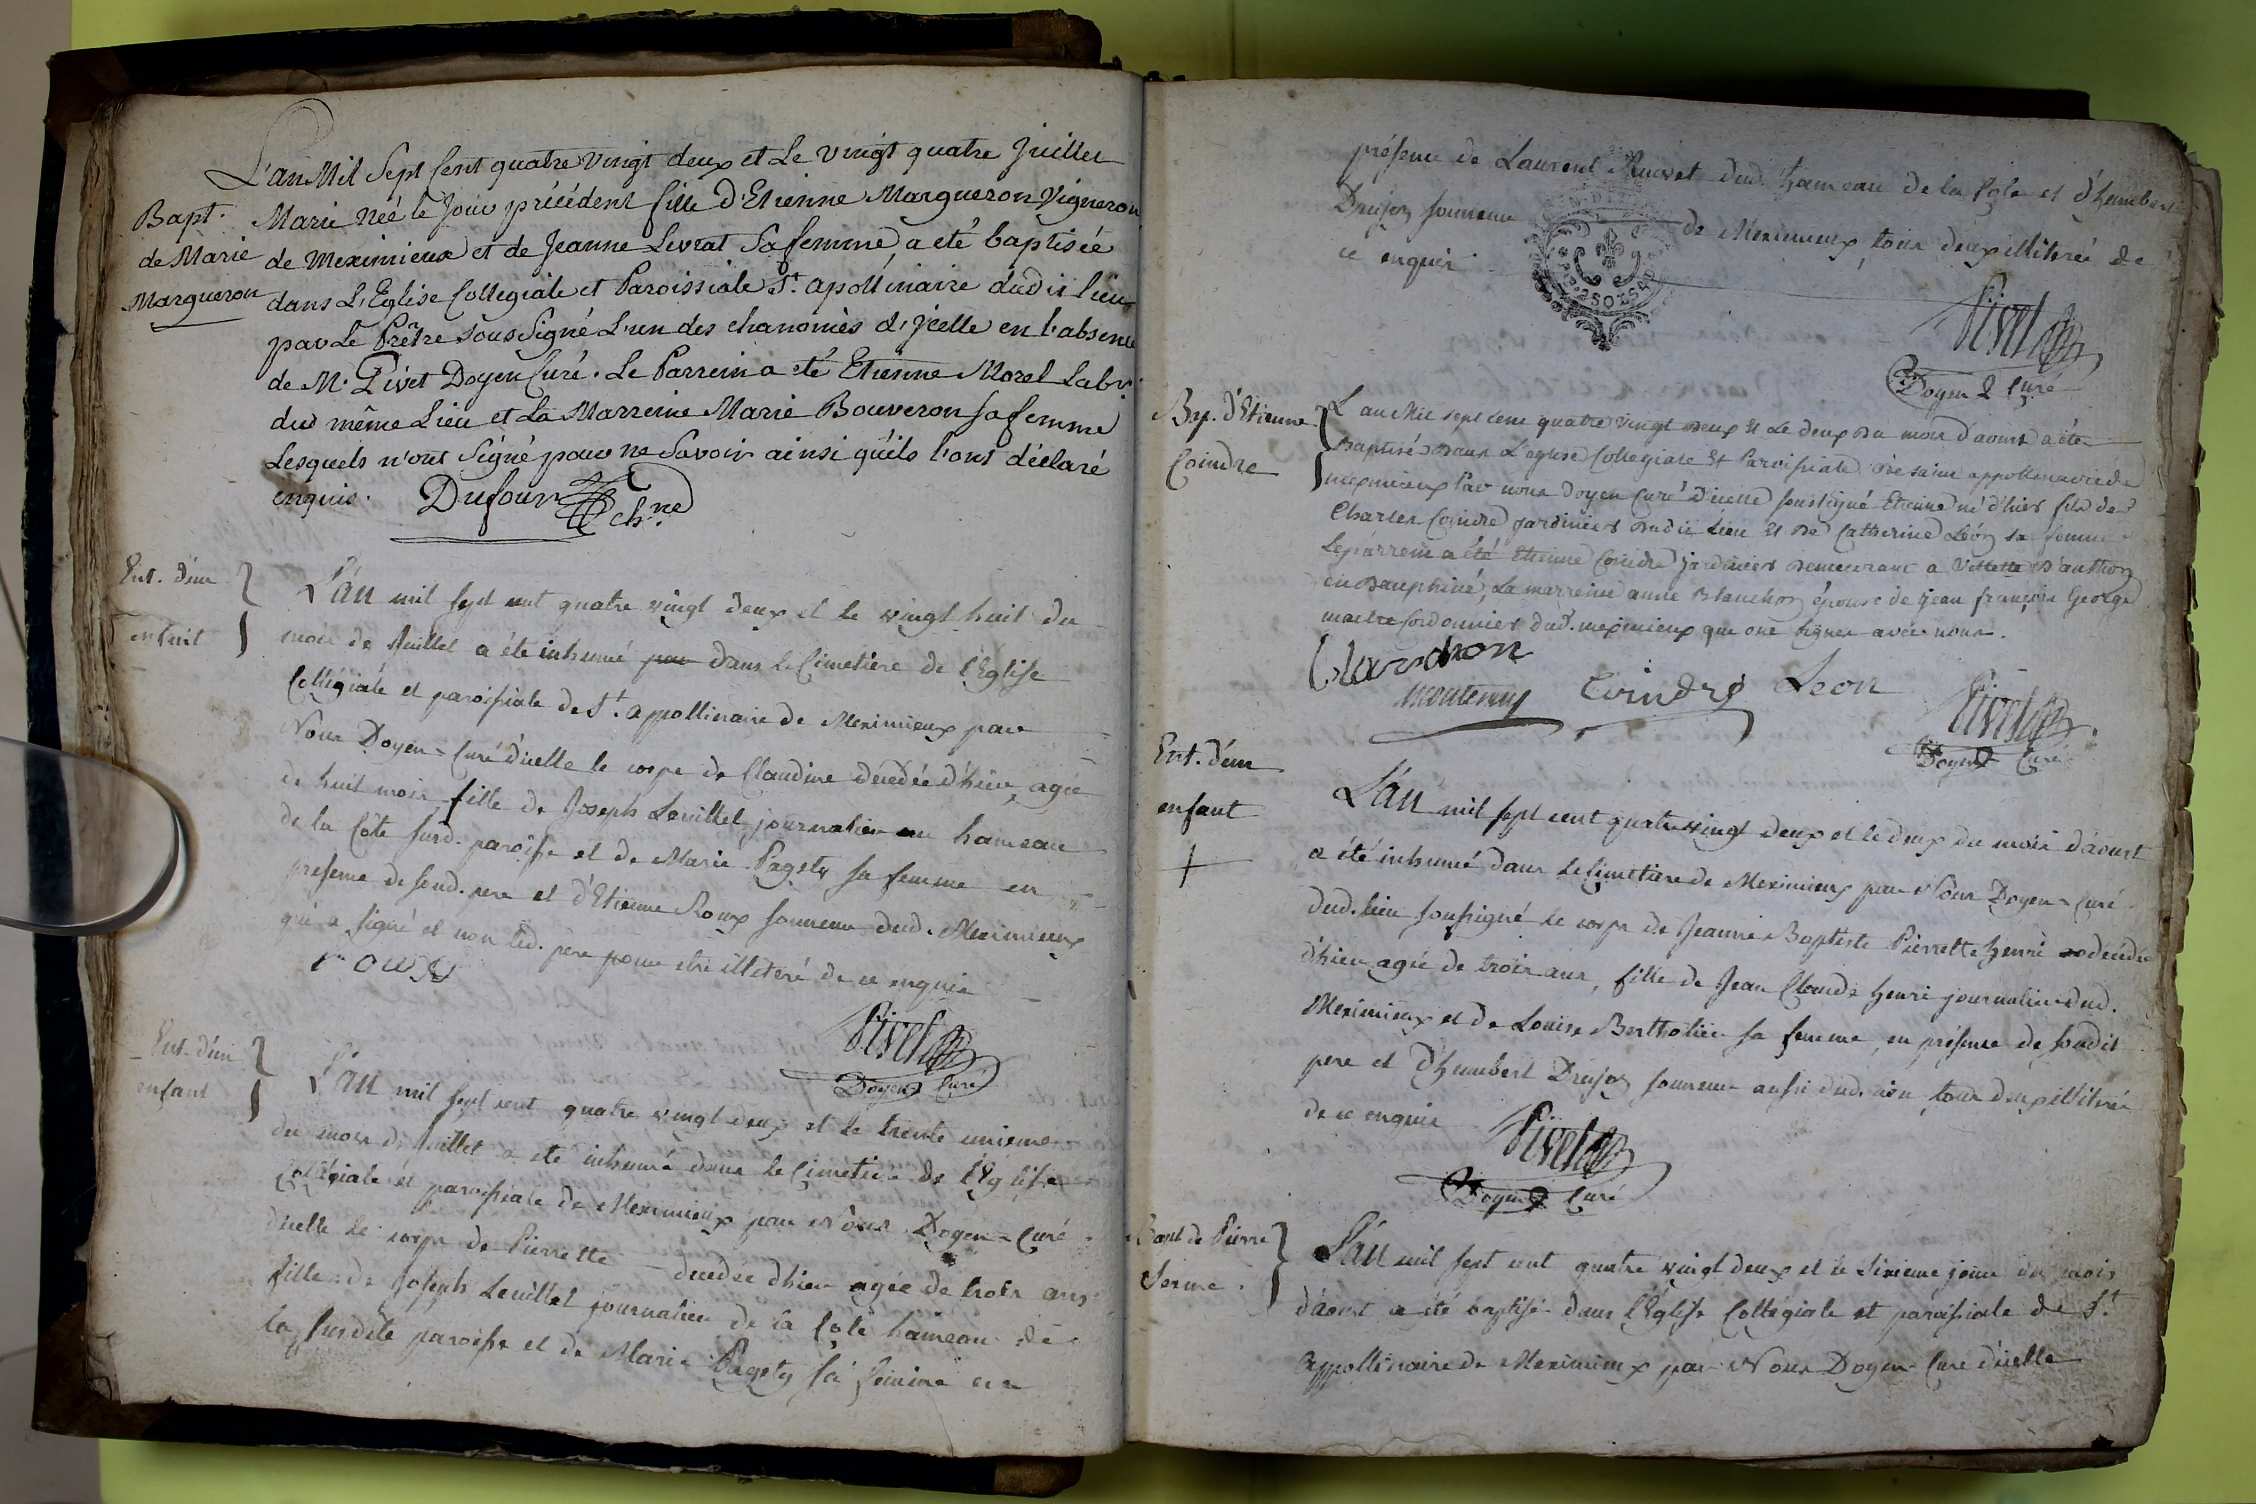 L'an Mil Sept Cent quatre vingt deux et Le vingt quatre Juillet
Bapt. de Marie Margueron
Marie Née le Jour précédent fille d'Etienne Margueron Vigneron
de Meximieux et de Jeanne Levrat Sa femme, a eté baptisée
dans L'Eglise Collegiale et Paroissiale St. apollinaire dudit lieu
par Le Prêtre sous Signé L'un des chanoines d'Jcelle en l'absence
de Mr. Pivet Doyen Curé. Le Parrein a eté Etienne Morel Labr.
dud même Lieu et La Marreine Marie Bouveron sa femme
Lesquels n'ont Signé pour ne Savoir ainsi qu'ils l'ont déclaré
enquis. Dufour chne
Ent. d'un
enfant
L'an mil sept cent quatre vingt deux et le vingt huit du
mois de Juillet a été inhumé dans le Cimetiere de l'Eglise
Collégiale et paroissiale de St. appollinaire de Meximieux par
Nous Doyen-Curé d'icelle le corps de Claudine décédée d'hier, agée
de huit mois, fille de Joseph Leuillet journalier au hameau
de la Côte susd. paroisse et de Marie Pagety sa femme en
présence de sond. pere et d'Etienne Roux sonneur dud. Meximieux
qui a signé et non led. pere pour être illiteré de ce enquis
roux
Pivet
Doyen Curé
Ent. d'un
enfant
L'an mil sept cent quatre vingt deux et le trente unieme
du mois de Juillet a été inhumé dans le Cimetiere de l'Eglise
Collégiale et paroissiale de Meximieux par Nous Doyen-Curé
d'icelle le corps de Pierrette décédée d'hier agée de trois ans
fille de Joseph Leuillet journalier de la Côte hameau de
la susdite paroisse et de Marie Pagety sa femme en
présence de Laurent dud. hameau de la Cote et d'humbert
Drujon sonneur de Meximieux, tous deux illiterés de
ce enquis
Pivet
Doyen & Curé
Bap. d'Etienne
Coindre
L'an Mil sept cent quatre vingt deux et Le deux du mois d'aoust a été
Baptisé dans L'eglise Collegiale et Paroissiale de saint appollinaire de
meximieux Par nous Doyen Curé D'icelle soussigné Etienne né d'hier fils de
Charles Coindre jardinier dudit Lieu et de Catherine Léon sa femme
Le parrein a été Etienne Coindre jardinier demeurant a Villette d'anthon
en Dauphiné, La marreine anne Blanchon épouse de jean françois George
maitre Cordonnier dud. meximieux qui ont signer avec nous.
Blanchon
montenuy Coindre Leon
Pivet
Doyen Curé
Ent. d'un
enfant
L'an mil sept cent quatre vingt deux et le deux du mois d'aoust
a été inhumé dans le Cimetiere de Meximieux par Nous Doyen-Curé
dud. lieu soussigné le corps de Jeanne Baptiste Pierrette henri décédée
d'hier agée de trois ans, fille de Jean Claude henri journalier dud.
Meximieux et de Louise Bertholier sa femme, en présence de sondit
pere et d'humbert Drujon sonneur aussi dud. lieu, tous deux illiterés
de ce enquis
Pivet
Doyen Curé
Bapt de Pierre
L'an mil sept cent quatre vingt deux et le sixieme jour du mois
d'aoust a été baptisé dans l'Eglise Collégiale et paroissiale de St.
appollinaire de Meximieux par Nous Doyen-Curé d'icelle